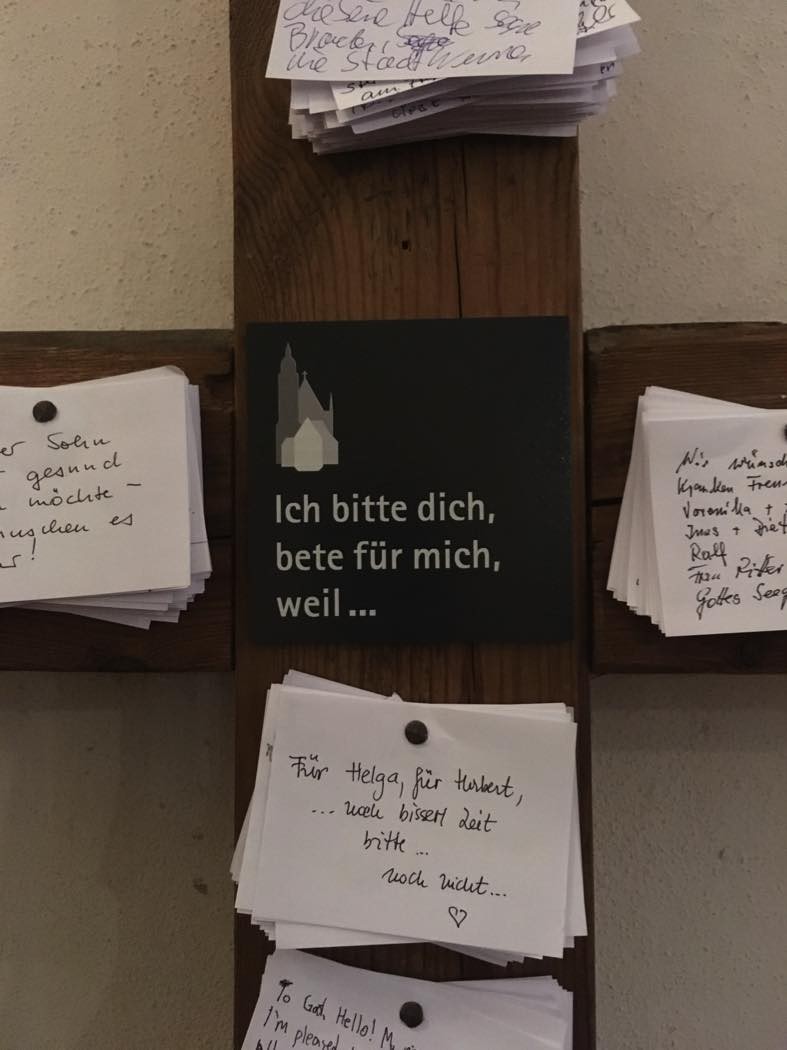 diese Helfe
die Stadt
am
Sohn
gesund
möchte –
es
Ich bitte dich,
bete für mich,
weil ...
Wir wünsch
kranken Freun
Veronika +
Ines + Diet
Ralf
Frau Ritter
Gottes Seg
Für Helga, für Herbert,
... noch bisserl Zeit
bitte ...
noch nicht...
To God, Hello! My
I'm pleased